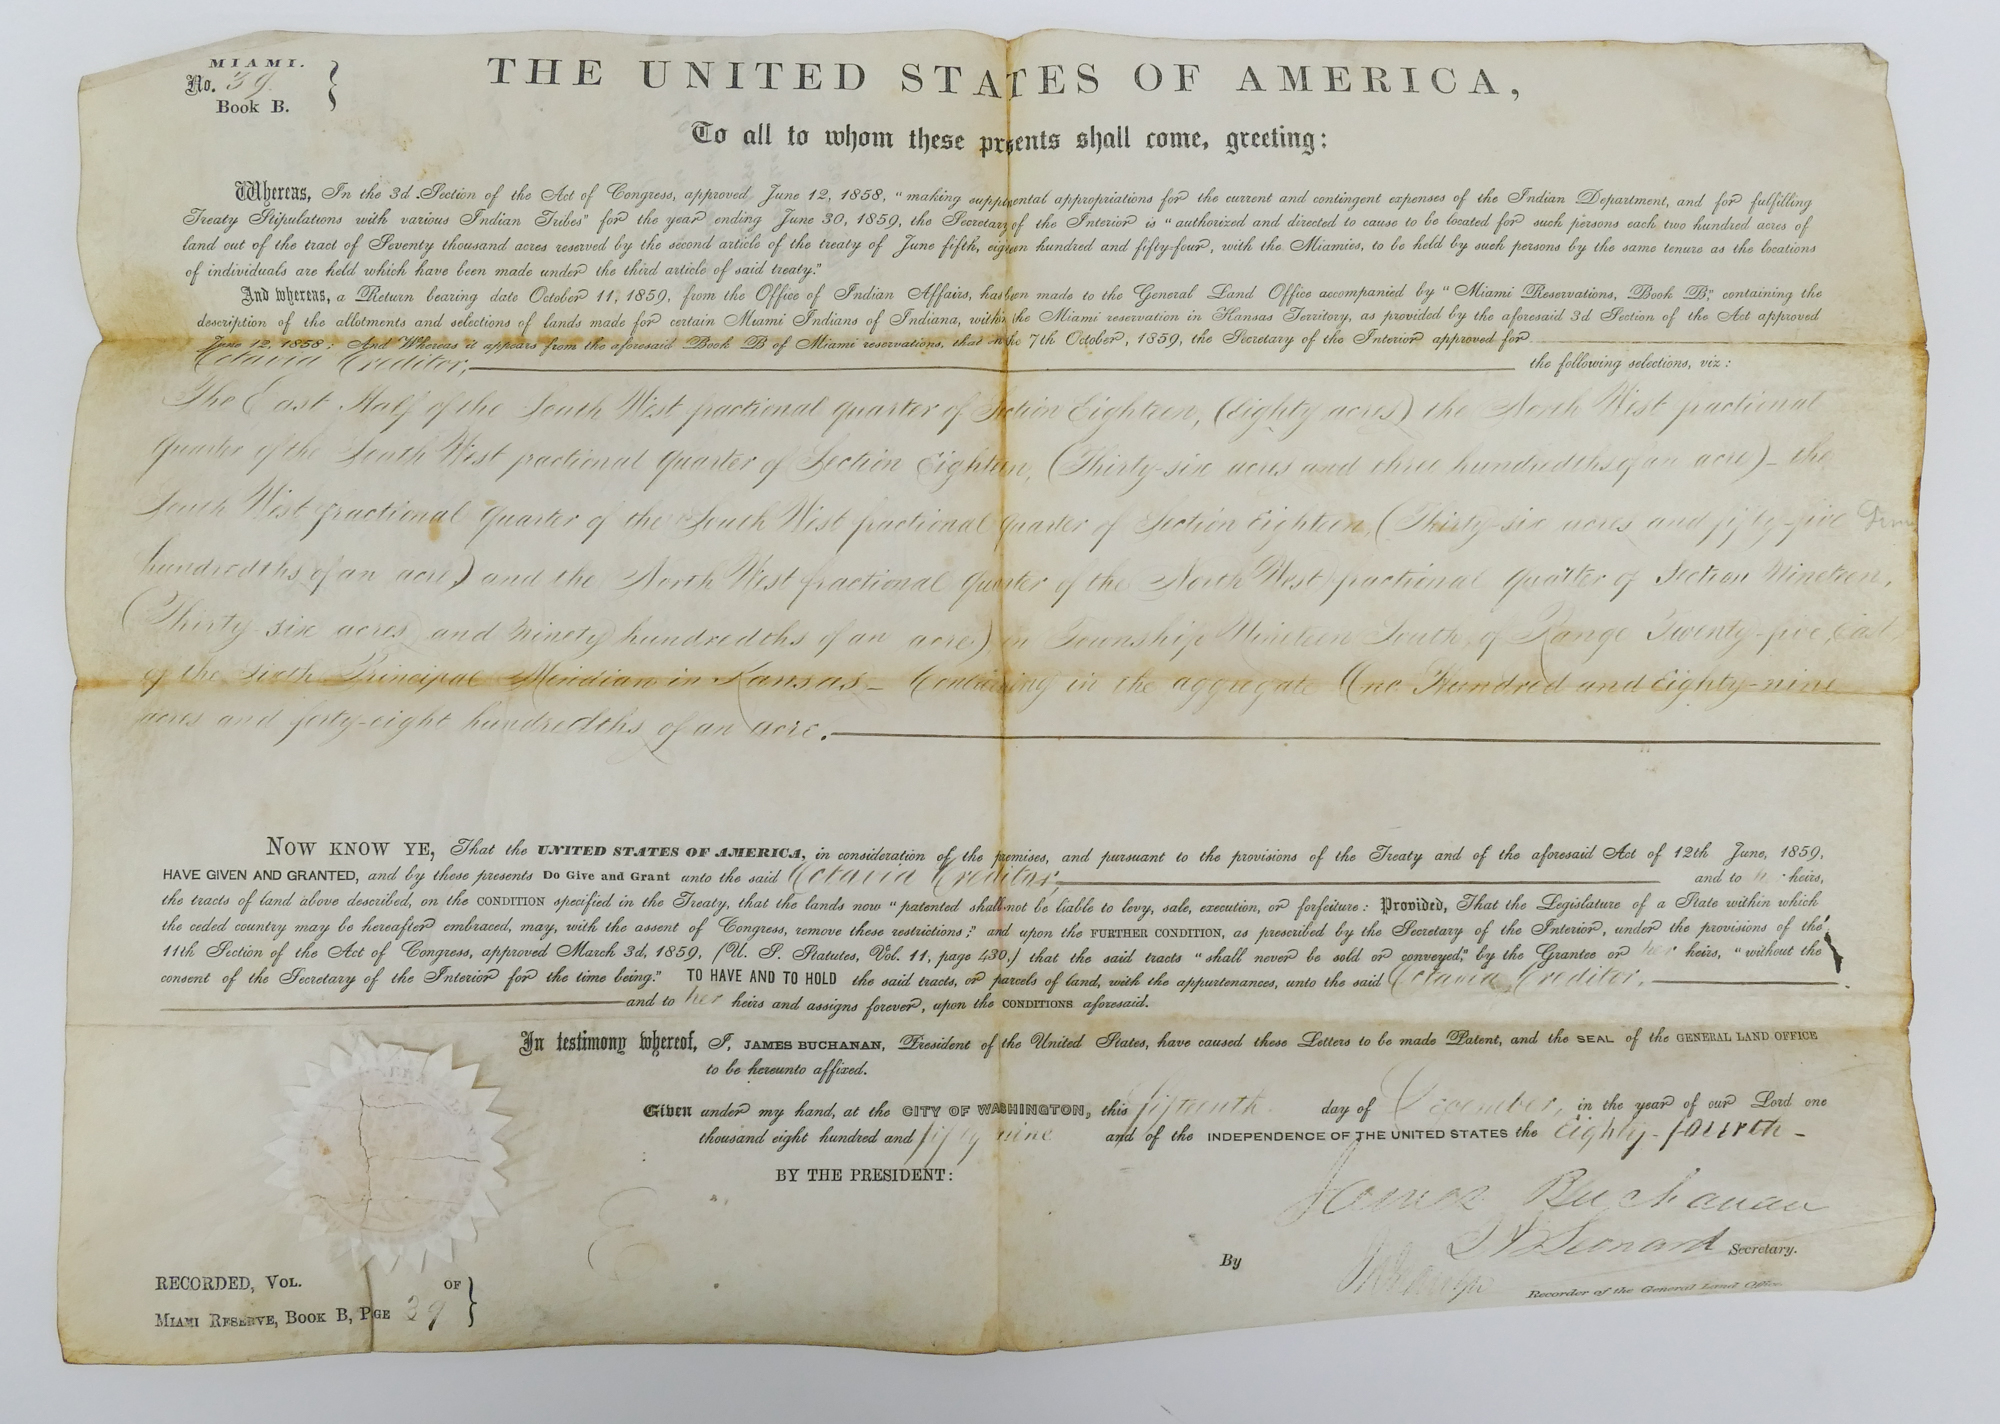 MIAMI.
No. 39.
Book B.
THE UNITED STATES OF AMERICA,
To all to whom these prsents shall come, greeting:
Whereas, In the 3d Section of the Act of Congress, approved June 12, 1858, "making supplental appropriations for the current and contingent expenses of the Indian Department, and for fulfilling
Treaty Stipulations with various Indian Tribes" for the year ending June 30, 1859, the Secretary of the Interior is "authorized and directed to cause to be located for such persons each two hundred acres of
land out of the tract of Seventy thousand acres reserved by the second article of the treaty of June fifth, eighteen hundred and fifty-four, with the Miamies, to be held by such persons by the same tenure as the locations
of individuals are held which have been made under the third article of said treaty."
And whereas, a Return bearing date October 11, 1859, from the Office of Indian Affairs, has been made to the General Land Office accompanied by "Miami Reservations, Book B," containing the
description of the allotments and selections of lands made for certain Miami Indians of Indiana, within the Miami reservation in Kansas Territory, as provided by the aforesaid 3d Section of the Act approved
June 12, 1858; And Whereas it appears from the aforesaid Book B of Miami reservations, that on the 7th October, 1859, the Secretary of the Interior approved for
Octavia Creditor, the following selections, viz:
The East Half of the South West fractional quarter of Section Eighteen, (Eighty acres) the North West fractional
quarter of the South West fractional quarter of Section Eighteen, (Thirty-six acres and three hundredths of an acre) - the
South West fractional quarter of the South West fractional quarter of Section Eighteen, (Thirty-six acres and fifty-five
hundredths of an acre) and the North West fractional quarter of the North West fractional quarter of Section Nineteen,
(Thirty-six acres and ninety hundredths of an acre) in Township Nineteen South, of Range Twenty-five, East
of the Sixth Principal Meridian in Kansas - Containing in the aggregate One Hundred and Eighty-nine
acres and forty-eight hundredths of an acre.
NOW KNOW YE, That the UNITED STATES OF AMERICA, in consideration of the premises, and pursuant to the provisions of the Treaty and of the aforesaid Act of 12th June, 1859,
HAVE GIVEN AND GRANTED, and by these presents Do Give and Grant unto the said Octavia Creditor, and to heirs,
the tracts of land above described, on the CONDITION specified in the Treaty, that the lands now "patented shall not be liable to levy, sale, execution, or forfeiture: Provided, That the Legislature of a State within which
the ceded country may be hereafter embraced, may, with the assent of Congress, remove these restrictions;" and upon the FURTHER CONDITION, as prescribed by the Secretary of the Interior, under the provisions of the
11th Section of the Act of Congress, approved March 3d, 1859, (U. S. Statutes, Vol. 11, page 430,) that the said tracts "shall never be sold or conveyed," by the Grantee or her heirs, "without the
consent of the Secretary of the Interior for the time being." TO HAVE AND TO HOLD the said tracts, or parcels of land, with the appurtenances, unto the said Octavia Creditor,
and to her heirs and assigns forever, upon the CONDITIONS aforesaid.
In testimony whereof, I, JAMES BUCHANAN, President of the United States, have caused these Letters to be made Patent, and the SEAL of the GENERAL LAND OFFICE
to be hereunto affixed.
Given under my hand, at the CITY OF WASHINGTON, this fifteenth day of December, in the year of our Lord one
thousand eight hundred and fifty nine and of the INDEPENDENCE OF THE UNITED STATES the eighty-fourth -
BY THE PRESIDENT:
James Buchanan
By Leonard Secretary.
Recorder of the General Land Office.
RECORDED, VOL. OF
MIAMI RESERVE, BOOK B, PGE 39